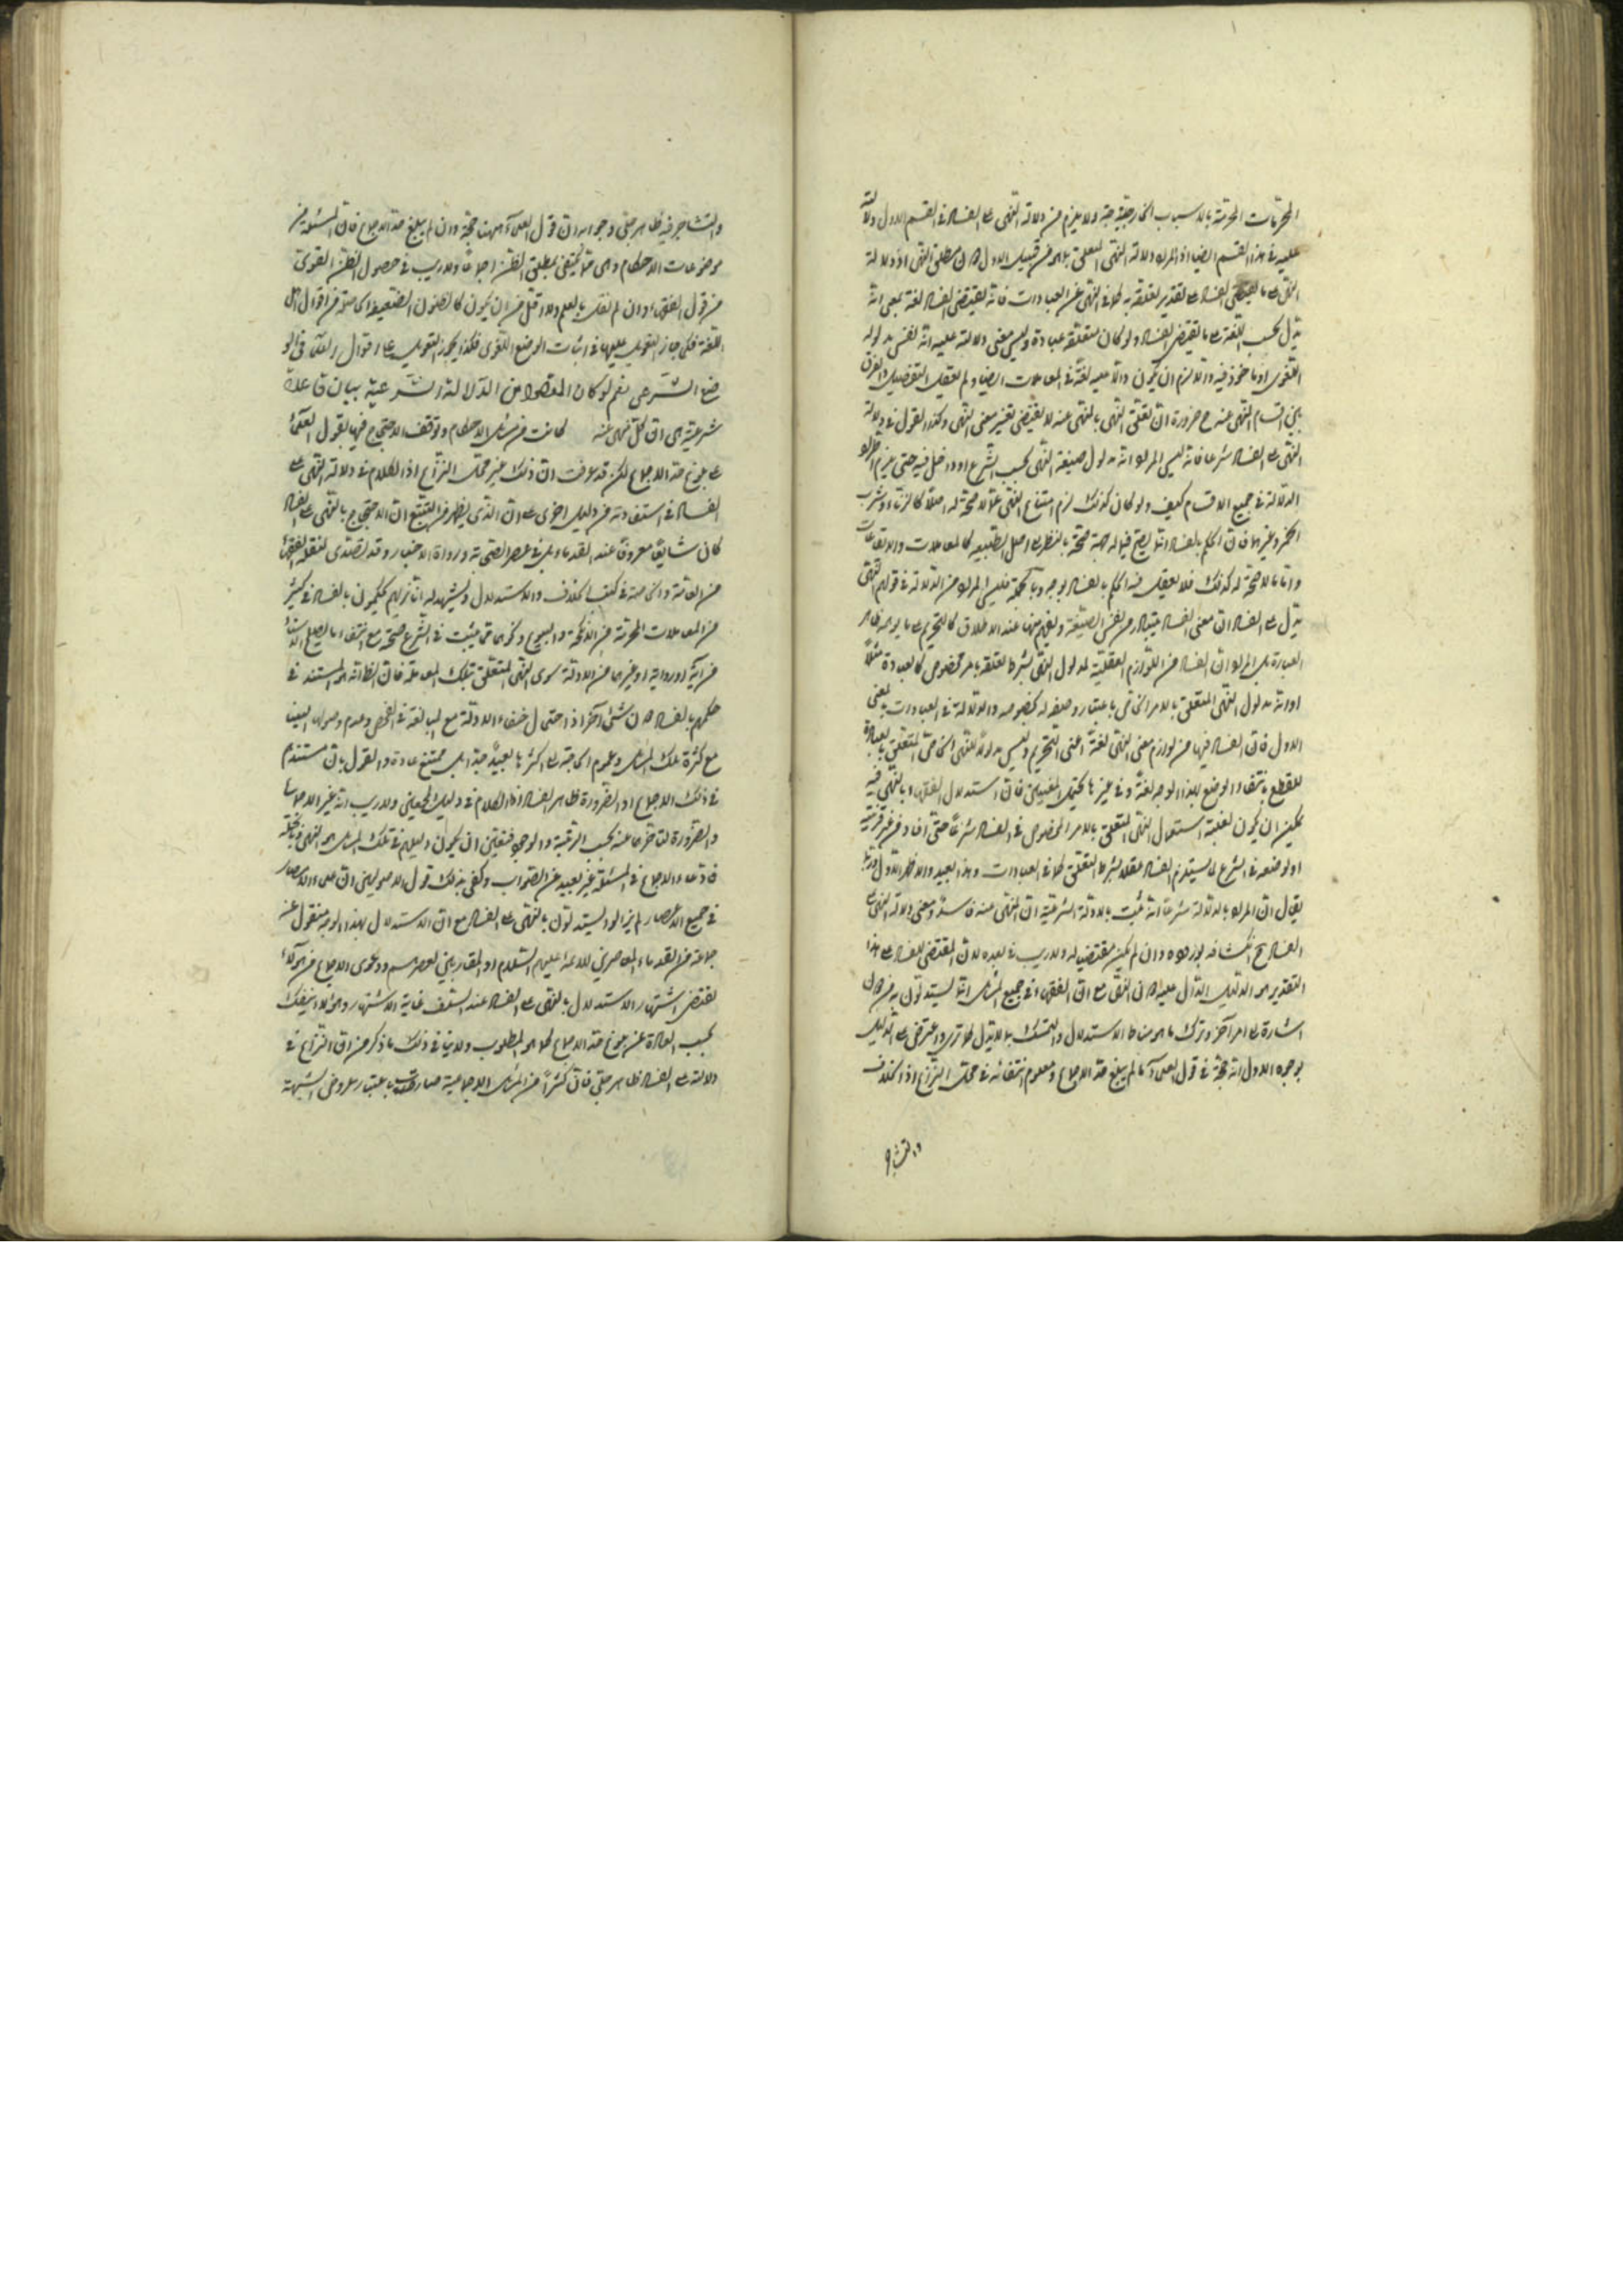 المحرمات المحرمة بالاسباب الخارجية جدا ولا يلزم من دلالة النهى على الفساد فى القسم الاول دلالته
عليه فى هذا القسم ايضا اذ المراد دلالة النهى المتعلق بما هو من قبيل الاول لا مطلق النهى اذ دلالة
النهى على ما يقتضى الفساد على تقدير تعلقه به كما فى النهى عن العبادات فانه يقتضى الفساد لغة بمعنى انه
يدل بحسب اللغة على ما يقتضى الفساد ولو كان متعلقه عبادة وليس معنى دلالته عليه انه نفس مدلوله
اللغوى او ماخوذ فيه والا لزم ان يكون دالا عليه لغة فى المعاملات ايضا ولم يعقل التفصيل والفرق
بين اقسام المنهى عنه ح ضرورة ان تعلق النهى بالمنهى عنه لا يقتضى تغيير معنى النهى وكذا القول فى دلالة
النهى على الفساد شرعا فانه ليس المراد انه مدلول صيغة النهى بحسب الشرع او داخل فيه حتى يلزم اطراد
الدلالة فى جميع الاقسام كيف ولو كان كذلك لزم امتناع النهى عما لا صحة له اصلا كالزناء وشرب
الخمر وغيرها فان الحكم بالفساد انما يصح فيما له جهة صحة بالنظر الى اصل الطبيعة كالمعاملات والايقاعات
واما ما لا صحة له كذلك فلا يعقل فيه الحكم بالفساد بوجه وبالجملة فليس المراد من الدلالة فى قولهم النهى
يدل على الفساد ان معنى الفساد يتبادر من نفس الصيغة ويفهم منها عند الاطلاق كالتحريم على ما يوهمه ظاهر
العبارة بل المراد ان الفساد من اللوازم العقلية لمدلول النهى بشرط تعلقه بامر مخصوص كالعبادة مثلا
او انه مدلول النهى المتعلق بالامر الخاص باعتبار وضعه له بخصوصه والدلالة فى العبادات بالمعنى
الاول فان الفساد فيها من لوازم معنى النهى لغة اعنى التحريم وليس مدلولا للنهى الخاص المتعلق بالعبادة
للقطع بانتفاء الوضع بهذا الوجه لغة وفى غيرها يحتمل المعنيين فان استدلال الفقهاء بالنهى فيه
يمكن ان يكون لغلبة استعمال النهى المتعلق بالامر المخصوص فى الفساد شرعا حتى افاد من غير قرينة
او لوضعه فى الشرع لما يستلزم الفساد عقلا بشرط التعلق كما فى العبادات وهذا بعيد والاظهر الاول وقد
يقال ان المراد بالدلالة شرعا انه ثبت بالادلة الشرعية ان المنهى عنه فاسد ومعنى دلالة النهى على
الفساد ح كشفه بوروده وان لم يكن مقتضيا له ولا ريب فى بعده لان المقتضى للفساد على هذا
التقدير هو الدليل الدال عليه لا النهى مع ان الفقهاء فى جميع المسائل انما يستدلون به من دون
اشارة الى امر آخر وترك ما هو مناط الاستدلال والتمسك بما لا يدل كما ترى واعترض على الدليل
بوجوه الاول انه لا حجة فى قول العلماء ما لم يبلغ حد الاجماع ومعلوم انتفائه فى محل النزاع اذ الخلاف
والتشاجر
والتشاجر فيه ظاهر جلى وجوابه ان قول العلماء ههنا حجة وان لم يبلغ حد الاجماع فان المسئلة من
موضوعات الاحكام وهى مما يكتفى بمطلق الظن اجماعا ولا ريب فى حصول الظن القوى
من قول الفقهاء وان لم نقل بالعلم ولا اقل من ان يكون كالظنون الضعيفة الحاصلة من اقوال اهل
اللغة فكما جاز التعويل عليها فى اثبات الوضع اللغوى فكذا يجوز التعويل على اقوال العلماء فى الو
ضع الشرعى نعم لو كان المقصود من الدلالة الشرعية بيان قاعدة
شرعية هى ان كل منهى عنه كانت من مسائل الاحكام وتوقف الاحتجاج فيها بقول العلماء
على بلوغ حد الاجماع لكن قد عرفت ان ذلك غير محل النزاع اذ الكلام فى دلالة النهى على
الفساد لا فى استفادته من دليل اخر على ان الذى يظهر من التتبع ان الاحتجاج بالنهى على الفساد
كان شايعا معروفا عند القدماء بل فى عصر الصحابة ورواة الاخبار وقد تصدى لنقله الفقهاء
من العامة والخاصة فى كتب الخلاف والاستدلال ويشهد له انا نريهم يحكمون بالفساد فى كثير
من المعاملات المحرمة من الانكحة والبيوع ونحوها مما يثبت فى الشرع صحته مع انتفاء ما يصلح للاستناد
من آية او رواية او غيرها من الادلة سوى النهى المتعلق بتلك المعاملة فان الظ انه هو المستند فى
حكمهم بالفساد لا شئ آخر اذ احتمال خفاء الادلة مع المبالغة فى الفحص وعدم وصولها الينا
مع كثرة تلك المسائل وعموم الحاجة الى اكثرها بعيد جدا بل ممتنع عادة والقول بان مستندهم
فى ذلك الاجماع او الضرورة ظاهر الفساد اذ الكلام فى دليل المجمعين ولا ريب انه غير الاجماع
والضرورة لتاخرهما عنه بحسب الرتبة والوجود فتعين ان يكون دليلهم فى تلك المسائل هو النهى وبالجملة
فادعاء الاجماع فى المسئلة غير بعيد عن الصواب وكفى بذلك قول الاصوليين ان علماء الامصار
فى جميع الاعصار لم يزالوا يستدلون بالنهى على الفساد مع ان الاستدلال بهذا الوجه منقول عن
جماعة من القدماء المعاصرين للائمة عليهم السلام او المقاربين لعصرهم ودعوى الاجماع من هؤلاء
يقتضى اشتهار الاستدلال بالنهى على الفساد عند السلف غاية الاشتهار وهو لا ينفك
بحسب العادة عن بلوغ حد الاجماع كما هو المطلوب ولا ينافى ذلك ما ذكر من ان النزاع فى
دلالته على الفساد ظاهر جلى فان كثيرا من المسائل الاجماعية صارت باعتبار عروض الشبهة